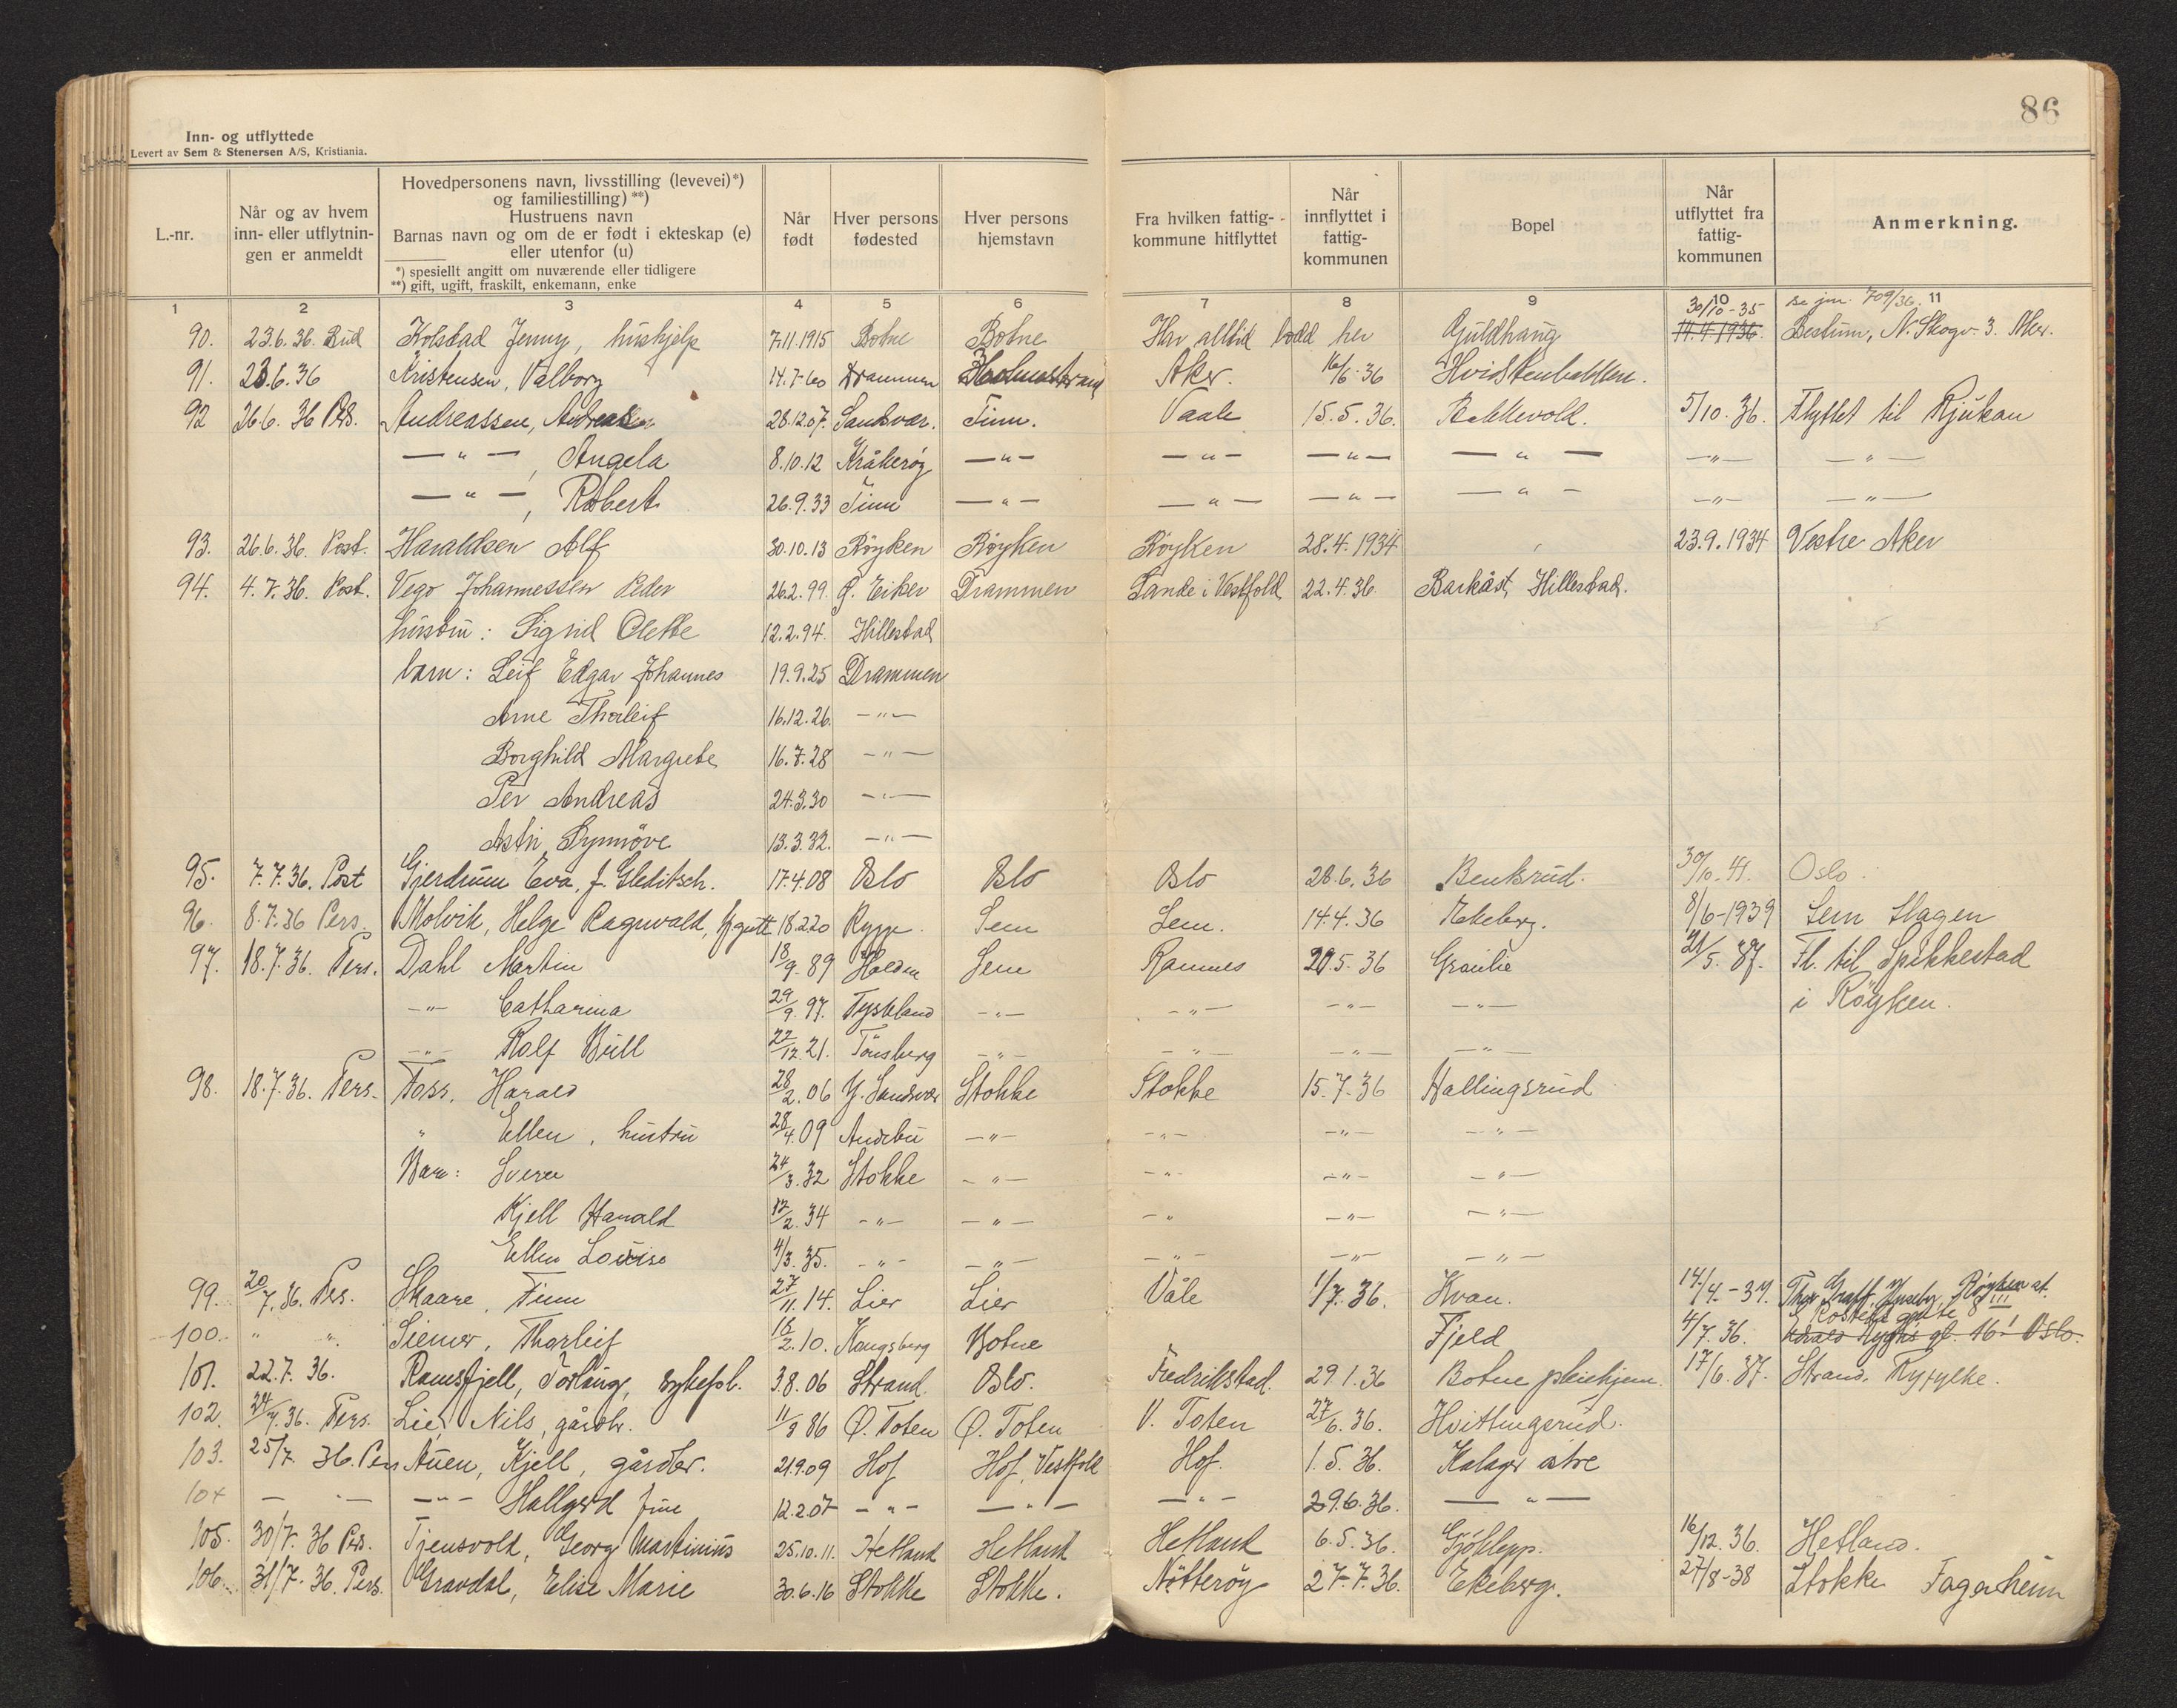 86
Inn- og utflyttede
Levert av Sem & Stenersen A/S, Kristiania.
L.-nr.
Når og av hvem inn- eller utflytnin- gen er anmeldt
Hovedpersonens navn, livsstilling (levevei)*) og familiestilling) **) Hustruens navn Barnas navn og om de er født i ekteskap (e) eller utenfor (u)
*) spesiellt angitt om nuværende eller tidligere
**) gift, ugift, fraskilt, enkemann, enke
Når født
Hver persons fødested
Hver persons hjemstavn
Fra hvilken fattig- kommune hitflyttet
Når innflyttet i fattig- kommunen
Bopel
Når utflyttet fra fattig- kommunen
Anmerkning.
1 2 3 4 5 6 7 8 9 10 11
30/10-35 Se jnr. 709/36.
90. 23.6.36. Bud Kolstad Jenny, hushjelp 7.11.1915 Botne Botne Har alltid bodd her Guldhaug 14.4.1936. Bestum, N. Skogv. 3. Aker.
91. 23.6.36 Kristensen, Valborg 14.7-60 Drammen Holmestrand Aker. 16/6-36
92 26.6.36 Pers. Andreassen, Andreas 28.12.07. Sandsvær. Tinn. Vaale 15.5.36. Bakkevold. 5/10.36. Flyttet til Rjukan
—"—, Angela 8.10.12 Kråkerøy —"— —"— —"— —"— —"— —"—
—"—, Robert 26.9.33 Tinn —"— —"— —"— —"— —"— —"—
93. 26.6.36. Post. Haraldsen Alf 30.10.13 Röyken Röyken Röyken 28.4.1934 23.9.1934 Vestre Aker
94. 4.7.36. Post. Vego Johannessen Peder 26.2.99. Ø. Eiker Drammen Sande i Vestfold 22.4.36 Barkåst, Hillestad.
hustru: Sigrid Olette 12.2.94. Hillestad
barn: Leif Edgar Johannes 19.9.25 Drammen
Arne Thorleif 16.12.26. —"—
Borghild Margrete 16.7.28 —"—
Per Andreas 24.3.30 —"—
Astri Synnöve 13.3.32. —"—
95. 7.7.36. Post Gjerdrum Eva, f. Gleditsch. 17.4.08 Oslo Oslo Oslo 28.6.36 Bentsrud. 30/10.41. Oslo.
96. 8.7.36 Pers. Molvik, Helge Ragnvald, 18.2.20 Rygge. Sem Sem. 14.4.36 Ekeberg. 8/6-1939 Sem Slagen
97. 18.7.36. Pers. Dahl Martin 18/9.89 Halden Sem Ramnes 20.5.36 Granlie 21/5.37. Fl. til Spikkestad
—"— Catharina 29/9.97. Tyskland —"— —"— —"— —"— i Röyken.
—"— Rolf Bull 22/12.21. Tönsberg —"— —"— —"— —"—
98. 18.7.36. Pers. Foss, Harald 28/2.06 Y. Sandsvær Stokke Stokke 15.7.36 Hallingsrud
" Ellen, hustru 28/4.09 Andebu —"— —"— —"— —"—
Barn: Sverre 24/3.32 Stokke —"— —"— —"— —"—
Kjell Harald 12/2.34 —"— —"— —" —"— —"—
Ellen Louise 4/3.35. —"— —"— —"— —"— —"—
99. 20/7.36. Pers. Skaare, Finn 27/11.14. Lier Lier Våle 1/7.36. Kvan. 14/4-37. Thor Graff, Hyseby, Röyken st.
100. " " Siemer, Thorleif 18/2.10. Kongsberg Botne Fjeld 4/7.36. gt. 16 Oslo.
101. 22.7.36. Ramsfjell, Torlaug, sykepl. 3.8.06 Strand. Oslo. Fredrikstad. 29.1.36 Botne pleiehjem. 17/6.37. Strand. Ryfylke.
102. 24/7.36. Pers. Lie, Nils, gårdbr. 11/3 86 Ø. Toten Ø. Toten V. Toten 27/6.36. Hvittingsrud.
103. 25/7.36. Pers Auen, Kjell, gårdbr. 21.9.09 Hof Hof, Vestfold Hof. 1.5.36. Kalager østre
104 — "— —"— Hallgerd frue 12.2.07 —"— —"— —"— 29.6.36. —"—
105. 30/7.36 Pers. Tjensvold, Georg Martinius 25.10.11. Hetland Hetland Hetland 6.5.36. Gjöklepp. 16/12.36. Hetland.
106. 31/7-36. Pers. Gravdal, Elise Marie 30.6.16 Stokke Stokke. Nötteröy 27.7.36. Ekeberg. 27/8-38 Stokke Fagerheim